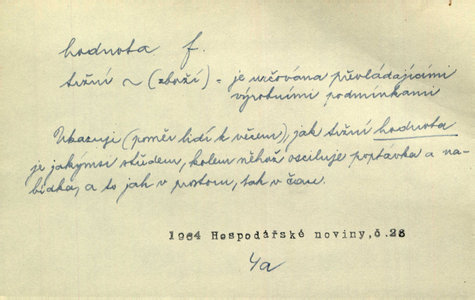 hodnota f.
tržní ~ (zboží) - je určována převládajícími
výrobními podmínkami
Ukazuje (poměr lidí k věcem), jak tržní hodnota
je jakýmsi středem, kolem něhož osciluje poptávka a na-
bídka, a to jak v prostoru, tak v čase.
1964 Hospodářské noviny,č.28
4a